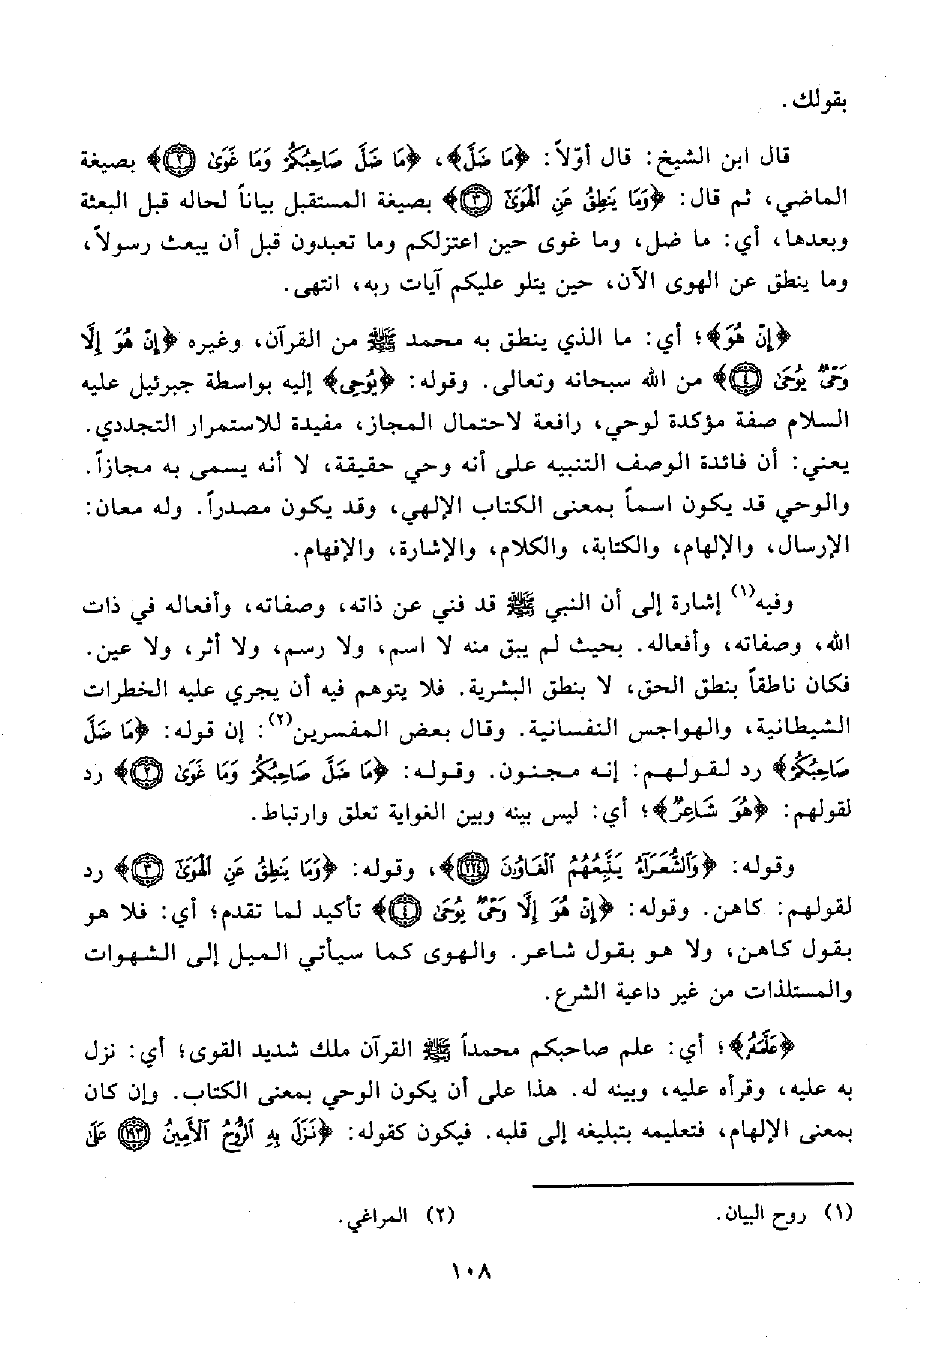 بقولك.
قال ابن الشيخ: قال أوّلاً: ﴿مَا ضَلَّ﴾، ﴿مَا ضَلَّ صَاحِبُكُمْ وَمَا غَوَىٰ (٢)﴾ بصيغة
الماضي، ثم قال: ﴿وَمَا يَنطِقُ عَنِ الْهَوَىٰ (٣)﴾ بصيغة المستقبل بياناً لحاله قبل البعثة
وبعدها، أي: ما ضل، وما غوى حين اعتزلكم وما تعبدون قبل أن يبعث رسولاً،
وما ينطق عن الهوى الآن، حين يتلو عليكم آيات ربه، انتهى.
﴿إِنْ هُوَ﴾؛ أي: ما الذي ينطق به محمد ﷺ من القرآن، وغيره ﴿إِنْ هُوَ إِلَّا
وَحْيٌ يُوحَىٰ (٤)﴾ من الله سبحانه وتعالى. وقوله: ﴿يُوحِي﴾ إليه بواسطة جبرئيل عليه
السلام صفة مؤكدة لوحي، رافعة لاحتمال المجاز، مفيدة للاستمرار التجددي.
يعني: أن فائدة الوصف التنبيه على أنه وحي حقيقة، لا أنه يسمى به مجازاً.
والوحي قد يكون اسماً بمعنى الكتاب الإلهي، وقد يكون مصدراً. وله معان:
الإرسال، والإلهام، والكتابة، والكلام، والإشارة، والإفهام.
وفيه(١) إشارة إلى أن النبي ﷺ قد فني عن ذاته، وصفاته، وأفعاله في ذات
الله، وصفاته، وأفعاله. بحيث لم يبق منه لا اسم، ولا رسم، ولا أثر، ولا عين.
فكان ناطقاً بنطق الحق، لا بنطق البشرية. فلا يتوهم فيه أن يجري عليه الخطرات
الشيطانية، والهواجس النفسانية. وقال بعض المفسرين(٢): إن قوله: ﴿مَا ضَلَّ
صَاحِبُكُمْ﴾ رد لقولهم: إنه مجنون. وقوله: ﴿مَا ضَلَّ صَاحِبُكُمْ وَمَا غَوَىٰ (٢)﴾ رد
لقولهم: ﴿هُوَ شَاعِرٌ﴾؛ أي: ليس بينه وبين الغواية تعلق وارتباط.
وقوله: ﴿وَالشُّعَرَاءُ يَتَّبِعُهُمُ الْغَاوُونَ (٢٢٤)﴾، وقوله: ﴿وَمَا يَنطِقُ عَنِ الْهَوَىٰ (٣)﴾ رد
لقولهم: كاهن. وقوله: ﴿إِنْ هُوَ إِلَّا وَحْيٌ يُوحَىٰ (٤)﴾ تأكيد لما تقدم؛ أي: فلا هو
بقول كاهن، ولا هو بقول شاعر. والهوى كما سيأتي الميل إلى الشهوات
والمستلذات من غير داعية الشرع.
﴿عَلَّمَهُ﴾؛ أي: علم صاحبكم محمداً ﷺ القرآن ملك شديد القوى؛ أي: نزل
به عليه، وقرأه عليه، وبينه له. هذا على أن يكون الوحي بمعنى الكتاب. وإن كان
بمعنى الإلهام، فتعليمه بتبليغه إلى قلبه. فيكون كقوله: ﴿نَزَلَ بِهِ الرُّوحُ الْأَمِينُ (١٩٣) عَلَىٰ
(١) روح البيان. (٢) المراغي.
١٠٨